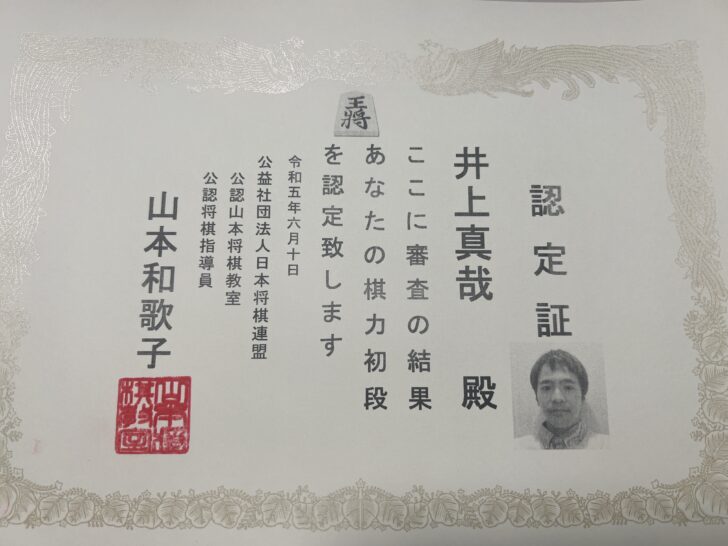 認定証
井上真哉 殿
ここに審査の結果
あなたの棋力初段
を認定致します
王將
令和五年六月十日
公益社団法人日本将棋連盟
公認山本将棋教室
公認将棋指導員
山本和歌子